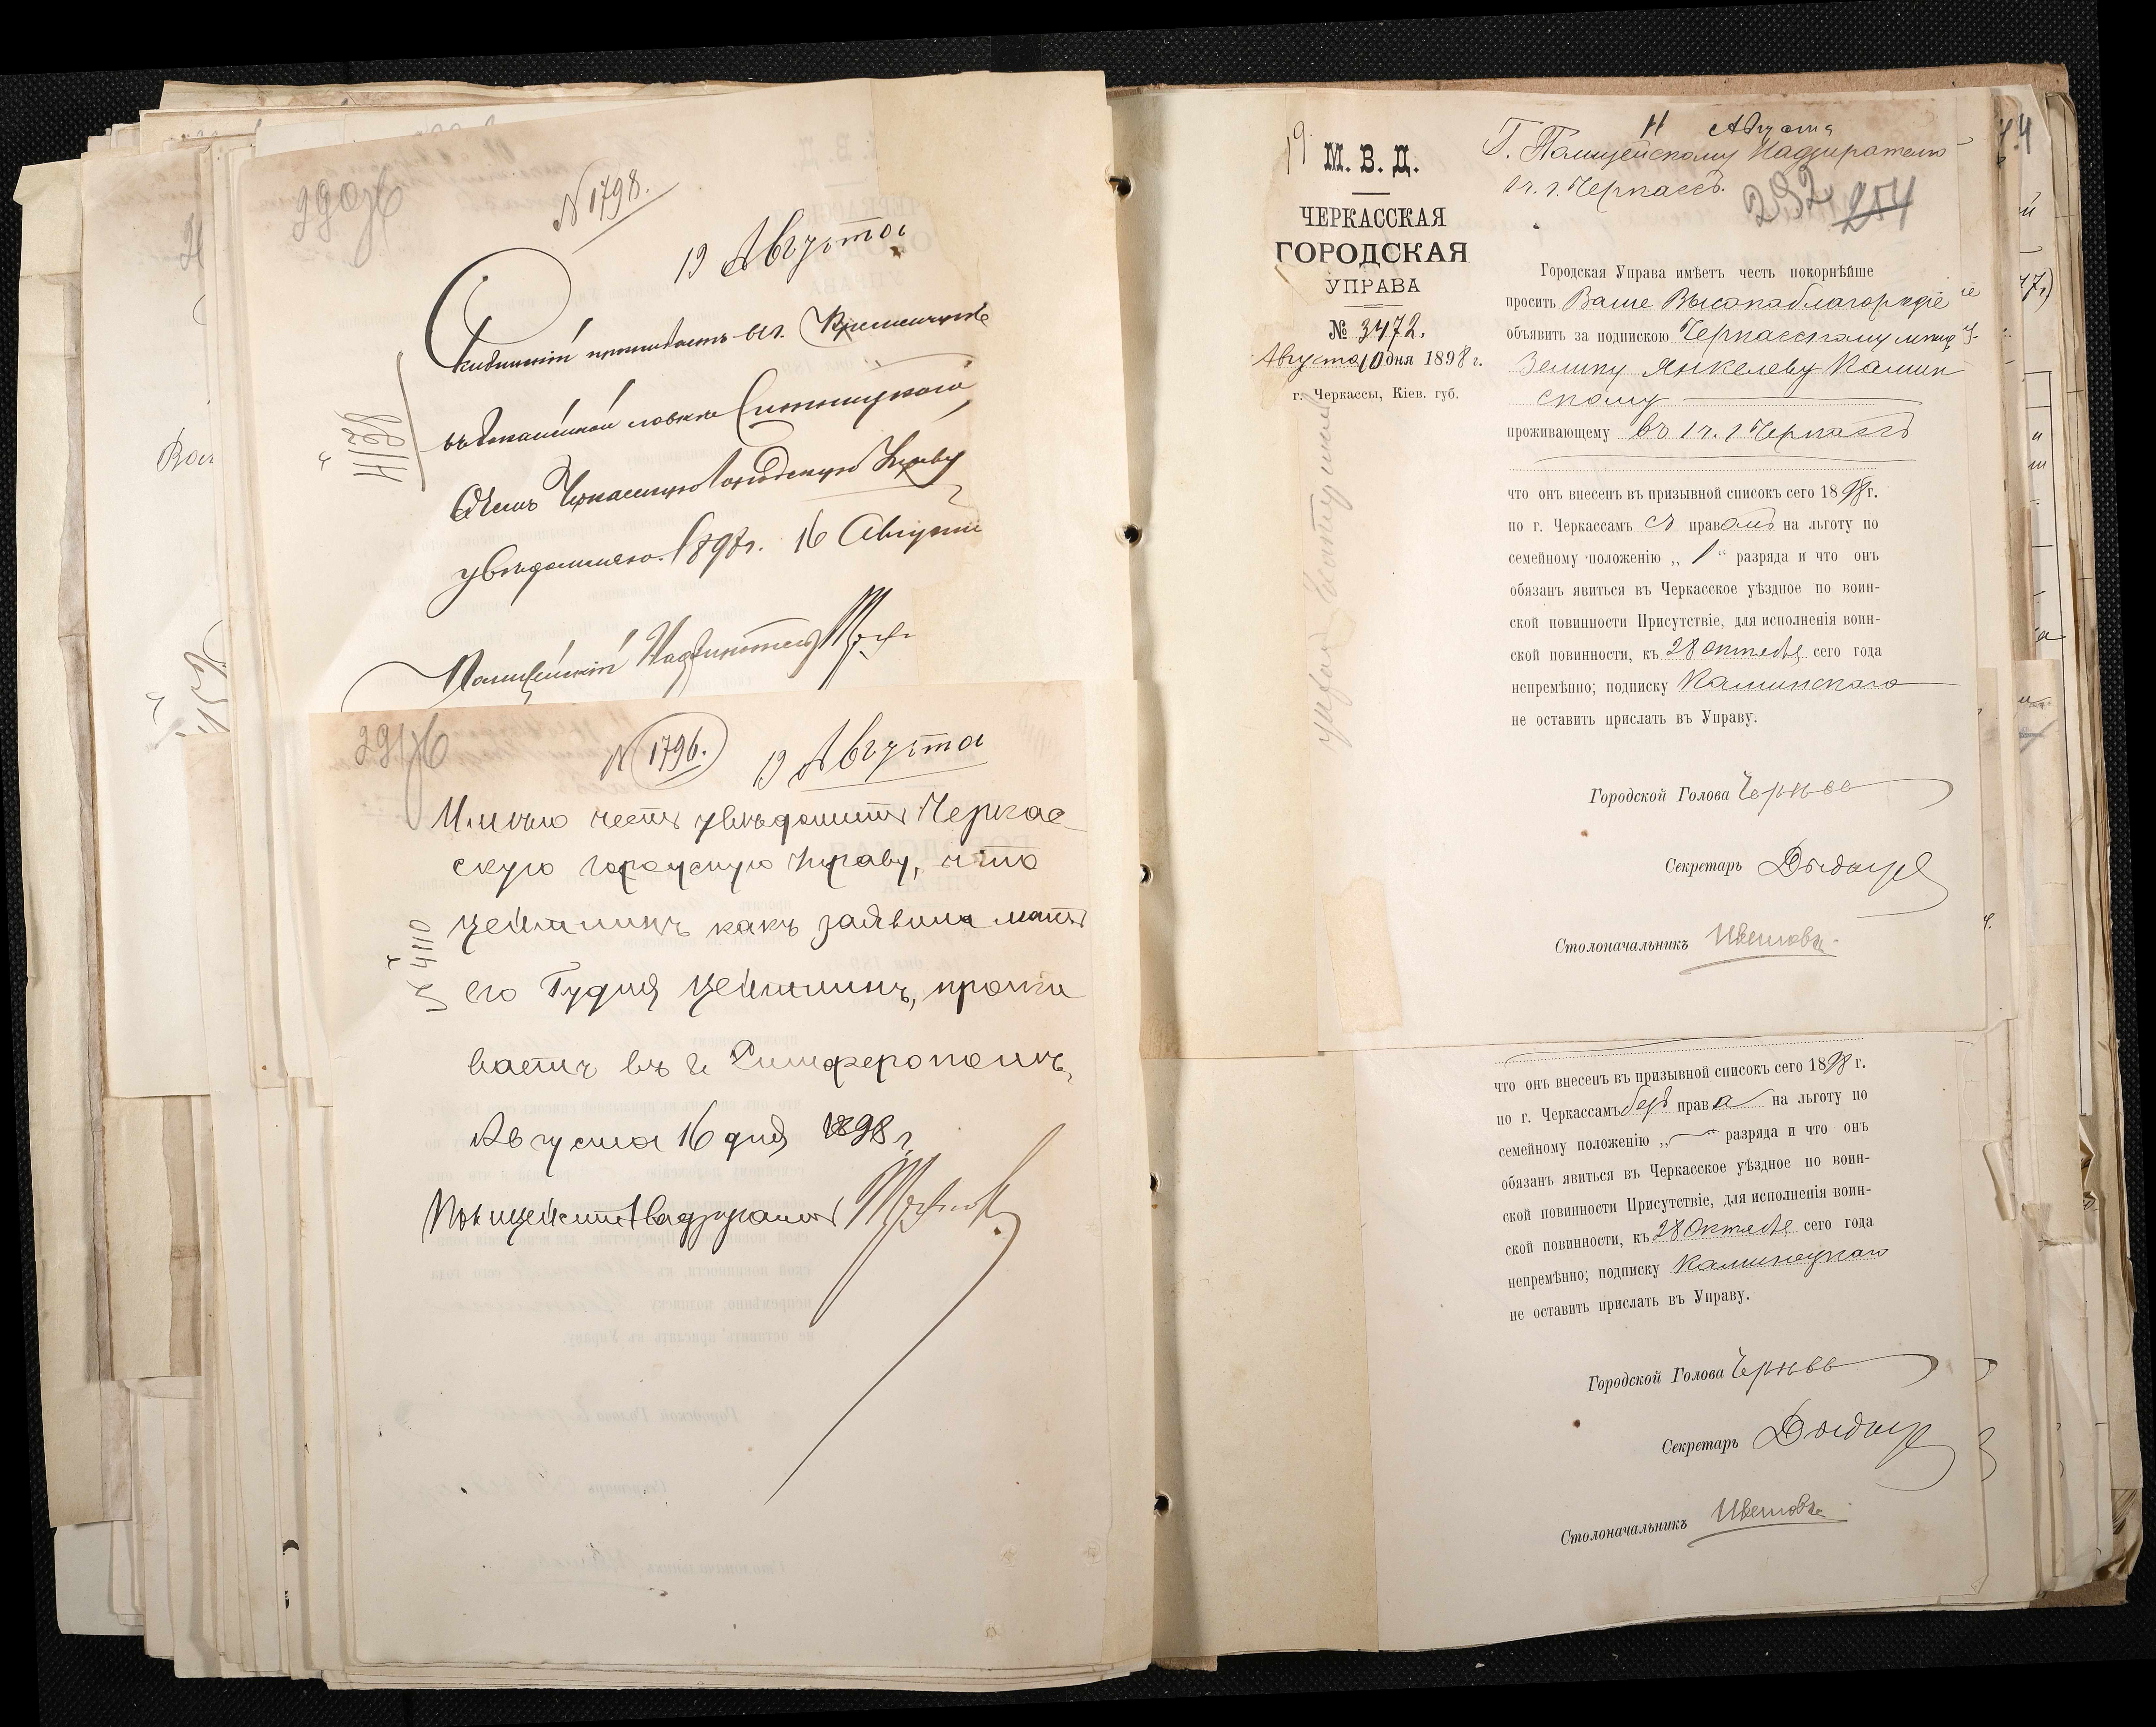 290
№ 1798.
19 Августа
проживаетъ въ г. Кременчугѣ
въ бакалейной лавкѣ
о чемъ Черкасскую Городскую Управу
увѣдомляю. 1898 г. 16 Августа
Полицейскій Надзиратель
291
№ 1796.
19 Августа
Имѣю честь увѣдомить Черкас-
скую городскую Управу, что
Цейтлинъ какъ заявила мать
его Гудля Цейтлинъ, прожи
ваетъ въ г. Симферополѣ,
Августа 16 дня 1898 г.
Полицейскій Надзиратель
4138
4110
19
М. В. Д.
ЧЕРКАССКАЯ
ГОРОДСКАЯ
УПРАВА
№ 3472.
Августа 10 дня 1898 г.
г. Черкассы, Кіев. губ.
11 Августа
Г. Полицейскому Надзирателю
1 ч. г. Черкассъ.
292 254
Городская Управа имѣетъ честь покорнѣйше
просить Ваше Высокоблагородіе
объявить за подпискою Черкасскому мѣщ.
Зелику Янкелеву Камин
скому
проживающему въ 1 ч. г. Черкассъ
что онъ внесенъ въ призывной списокъ сего 1898 г.
по г. Черкассамъ съ правомъ на льготу по
семейному положенію „ 1 “ разряда и что онъ
обязанъ явиться въ Черкасское уѣздное по воин-
ской повинности Присутствіе, для исполненія воин-
ской повинности, къ 28 октября сего года
непремѣнно; подписку Каминскаго
не оставить прислать въ Управу.
Городской Голова
Секретарь
Столоначальникъ Цвѣтковъ
что онъ внесенъ въ призывной списокъ сего 1898 г.
по г. Черкассамъ безъ права на льготу по
семейному положенію „ — “ разряда и что онъ
обязанъ явиться въ Черкасское уѣздное по воин-
ской повинности Присутствіе, для исполненія воин-
ской повинности, къ 28 Октября сего года
непремѣнно; подписку Каминецкаго
не оставить прислать въ Управу.
Городской Голова
Секретарь
Столоначальникъ Цвѣтковъ